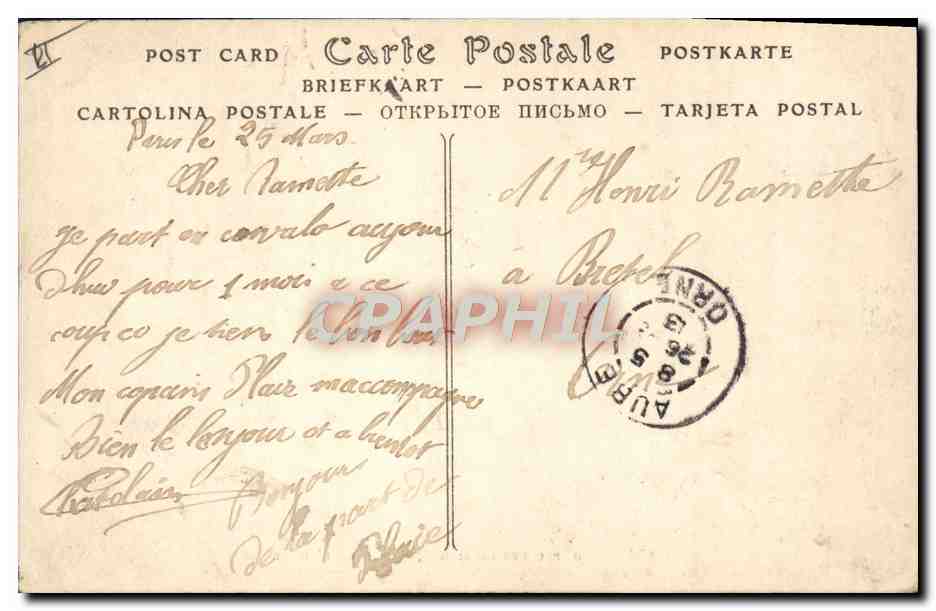 POST CARD Carte Postale POSTKARTE
BRIEFKAART — POSTKAART
CARTOLINA POSTALE — ОТКРЫТОЕ ПИСЬМО — TARJETA POSTAL
Paris le 25 Mars
Cher Ramette
je part en convalo aujour
dhui pour 1 mois a ce
coup co je tiens le bon bout
Mon copain Plaie maccompagne
Bien le bonjour et a bientot
Bonjour
de la part de
Plaie
Mr Henri Ramette
à Bretel
Orne
AUBE ORNE
8 5
26
13
CPAPHIL